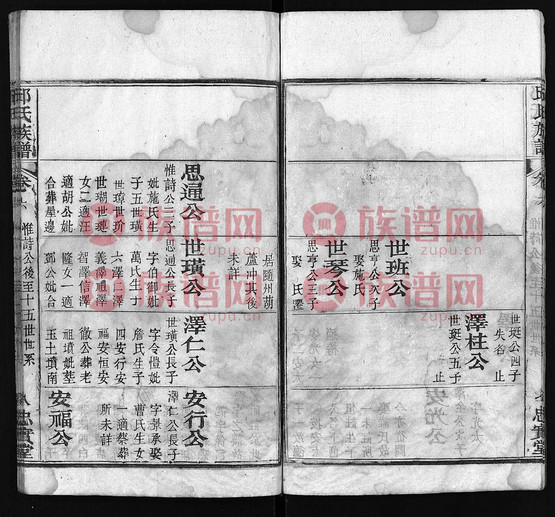 邱氏族譜
卷六
惟詩公後至十五世世系
忠實堂
世班公
思亨公次子
娶施氏
世琴公
思亨公三子
娶 氏 遷
居隨州葫
蘆冲其後
未詳
澤柱公
世斑公四子
失名 止
世斑公五子
止
思通公
惟詩公三子
妣施氏生
子五世璜
世琼世玠
世瑚世璉
女二適汪
適胡公妣
合葬壆邊
世璜公
思通公長子
字伯御妣
萬氏生子
六澤仁澤
義澤禮澤
智澤信澤
隆女一適
鄭公妣合
澤仁公
世璜公長子
字令愷妣
詹氏生子
四安行安
福安恒安
徹公葬老
祖墳妣塟
玉土墳南
安行公
澤仁公長子
字景承娶
曹氏生女
一適蔡葬
所未詳
安福公
族谱网
www.zupu.cn